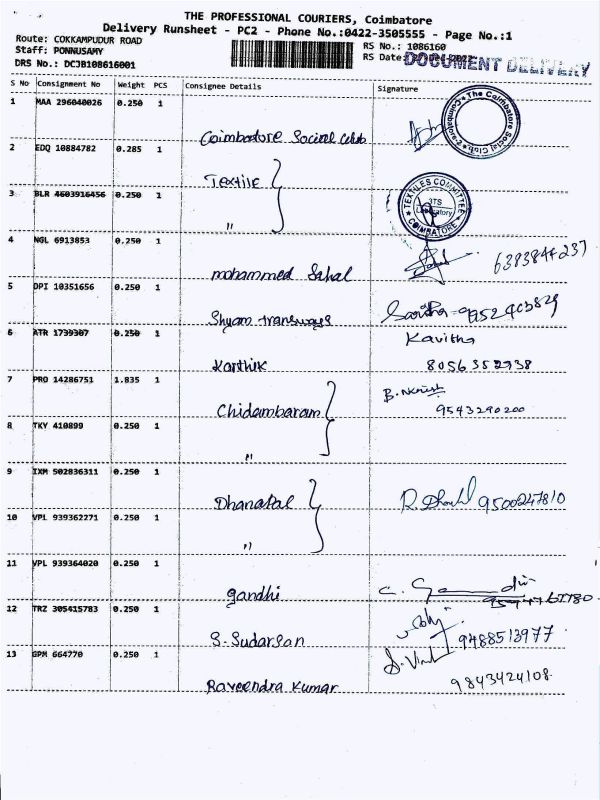 THE PROFESSIONAL COURIERS, Coimbatore
Delivery Runsheet - PC2 - Phone No.:0422-3505555 - Page No.:1
Route: COKKAMPUDUR ROAD
RS No.: 1086160
Staff: PONNUSAMY
RS Date:
DOCUMENT DELIVERY
DRS No.: DCJB108616001
S No Consignment No Weight PCS Consignee Details Signature
1 MAA 296040026 0.250 1
Coimbatore Social Club
The Coimbatore Social Club
2 EDQ 10884782 0.285 1
Textile
3 BLR 4603916456 0.250 1
"
TEXTILES COMMITTEE
3TS
Laboratory
COIMBATORE
4 NGL 6913853 0.250 1
mohammed Sahal 6383844237
5 DPI 10351656 0.250 1
Shyam transways
6 ATR 1739307 0.250 1
Kavitha
Karthik 8056352938
7 PRO 14286751 1.835 1
Chidambaram
9543290200
8 TKY 410899 0.250 1
"
9 IXM 502836311 0.250 1
Dhanapal 9500247810
10 VPL 939362271 0.250 1
"
11 VPL 939364020 0.250 1
gandhi
12 TRZ 305415783 0.250 1
S. Sudarsan 9488513977
13 GPM 664770 0.250 1
S. Vinod
Raveendra Kumar 9843424108